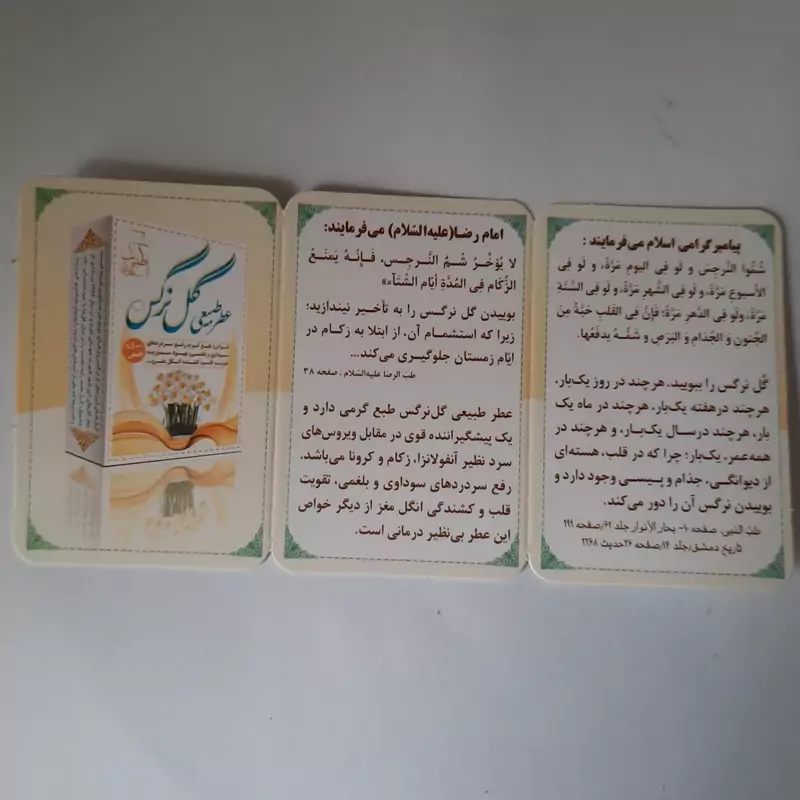 پیامبر گرامی اسلام می‌فرمایند :
شُمّوا النَّرجِسَ وَ لَو فِی الیومِ مَرَّةً، وَ لَو فِی
الأسبوعِ مَرَّةً، وَ لَو فِی الشَّهرِ مَرَّةً، وَ لَو فِی السَّنَةِ
مَرَّةً، وَلَو فِی الدَّهرِ مَرَّةً؛ فَإنَّ فِی القَلبِ حَبَّةً مِنَ
الجُنونِ وَ الجُذامِ وَ البَرَصِ وَ شَمُّهُ یدفَعُها.
گُل نرگس را ببویید، هرچند در روز یک‌بار،
هرچند درهفته یک‌بار، هرچند در ماه یک
بار، هرچند درسال یک‌بار، و هرچند در
همه‌عمر، یک‌بار؛ چرا که در قلب، هسته‌ای
از دیوانگی، جذام و پیسی وجود دارد و
بوییدن نرگس آن را دور می‌کند.
طبّ النبی، صفحه ۱۰- بحارالأنوار جلد ۶۲/صفحه ۲۹۹
تاریخ دمشق/جلد ۱۴/صفحه ۲۶حدیث ۲۲۶۸
امام رضا(علیه‌السّلام) می‌فرمایند:
لا یُؤخِّرُ شَمُّ النَّرجِس، فَإنَّهُ یَمنَعُ
الزُّکَامَ فِی المُدَّةِ أیّام الشّتآء»
بوییدن گل نرگس را به تأخیر نیندازید؛
زیرا که استشمام آن، از ابتلا به زکام در
ایّام زمستان جلوگیری می‌کند...
طب الرضا علیه‌السّلام . صفحه ۳۸
عطر طبیعی گل‌نرگس طبع گرمی دارد و
یک پیشگیراننده قوی در مقابل ویروس‌های
سرد نظیر آنفولانزا، زکام و کرونا می‌باشد.
رفع سردردهای سوداوی و بلغمی، تقویت
قلب و کشندگی انگل مغز از دیگر خواص
این عطر بی‌نظیر درمانی است.
عطر طبیعی گل نرگس